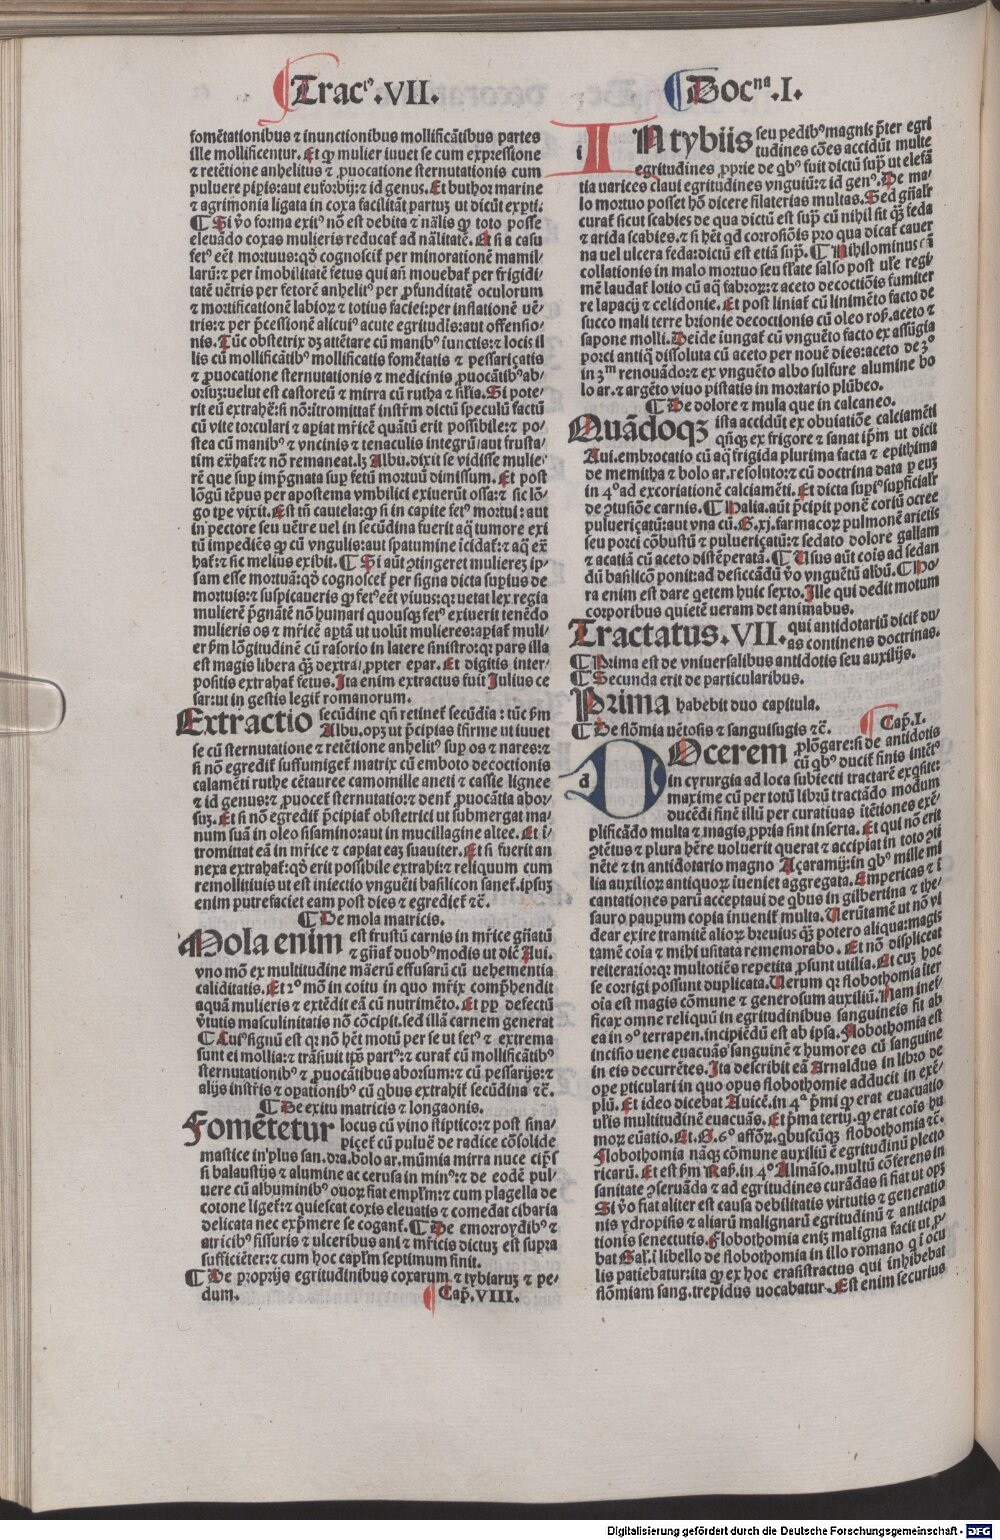 Tracꝰ.VII.
Docna.I.
fomētationibus ⁊ inunctionibus mollificātibus partes
ille mollificentur. Et ꝙ mulier iuuet se cum expressione
⁊ retētione anhelitus ⁊ ꝓuocatione sternutationis cum
puluere piꝑis: aut euforbij: ⁊ id genus. Et buthor marine
⁊ agrimonia ligata in coxa facilitāt partuꝫ ut dicūt expti.
¶ Si v̄o forma exitꝰ nō est debita ⁊ nālis ꝙ toto posse
eleuādo coxas mulieris reducat̄ ad nālitatē. Et si a casu
fetꝰ eēt mortuus: qđ cognoscit̄ per minorationē mamil/
larū: ⁊ per imobilitatē fetus qui añ mouebat̄ per frigidi/
tatē uētris per fetorē anhelitꝰ per ꝓfunditatē oculorum
⁊ mortificationē labioꝝ ⁊ totius faciei: per inflationē uē/
tris: ⁊ per p̄cessionē alicuiꝰ acute egritudīs: aut offensio/
nis. Tūc obstetrix dꝫ attētare cū manibꝰ iunctis: ⁊ locis il
lis cū mollificātibꝰ mollificatis fomētatis ⁊ pessariꝫatis
⁊ ꝓuocatione sternutationis ⁊ medicinis ꝓuocātibꝰ ab/
orsuꝫ: uelut est castoreū ⁊ mirra cū rutha ⁊ sil'ia. Si pote/
rit eū extrahē: si nō: ītromittat̄ instr̄m dictū speculū factū
cū vite torculari ⁊ apiat mr̄icē quātū erit possibile: ⁊ po/
stea cū manibꝰ ⁊ vncinis ⁊ tenaculis integrū: aut frusta/
tim ex̄hat̄: ⁊ nō remaneat. lꝫ Albu. dixit se vidisse mulie/
rē que suꝑ imp̄gnata suꝑ fetū mortuū dimissum. Et post
lōgū tēpus per apostema vmbilici exiuerūt ossa: ⁊ sic lō/
go tꝑe vixit. Est tn̄ cautela: ꝙ si in capite fetꝰ mortui: aut
in pectore seu uētre uel in secūdina fuerit aq̄ tumore exi
tū impediēs ꝙ cū vngulis: aut spatumine īcidat̄: ⁊ aq̄ ex̄
hat̄: ⁊ sic melius exibit. ¶ Si aūt ꝯtingeret mulierez ip/
sam esse mortuā: qđ cognoscet̄ per signa dicta supius de
mortuis: ⁊ suspicaueris ꝙ fetꝰ eēt viuus: qꝛ uetat lex regia
mulierē p̄gnātē nō humari quousqꝫ fetꝰ exiuerit tenēdo
mulieris os ⁊ mr̄icē aptā ut uolūt mulieres: apiat̄ muli/
er ꝑm lōgitudinē cū rasorio in latere sinistro: qꝛ pars illa
est magis libera qꝫ dextra ꝓpter epar. Et digitis inter/
positis extrahat̄ fetus. Ita enim extractus fuit Julius ce
sar: ut in gestis legit̄ romanorum.
Extractio secūdine qn̄ retinet̄ secūdia: tūc ꝑm
Albu. opꝫ ut p̄cipias īfirme ut iuuet
se cū sternutatione ⁊ retētione anhelitꝰ suꝑ os ⁊ nares: ⁊
si nō egredit̄ suffumiget̄ matrix cū emboto decoctionis
calamēti ruthe cētauree camomille aneti ⁊ cassie lignee
⁊ id genus: ⁊ ꝓuocet̄ sternutatio: ⁊ dent̄ ꝓuocātia abor/
suꝫ. Et si nō egredit̄ p̄cipiat̄ obstetrici ut submergat ma/
num suā in oleo sisamino: aut in mucillagine altee. Et ī/
tromittat eā in mr̄ice ⁊ capiat eaꝫ suauiter. Et si fuerit an
nexa extrahat̄: qđ erit possibile extrahi: ⁊ reliquum cum
remollitiuis ut est iniectio vnguēti basilicon sanet̄. ipsuꝫ
enim putrefaciet eam post dies ⁊ egrediet̄ ⁊c̄.
¶ De mola matricis.
Mola enim est frustū carnis in mr̄ice gn̄atū
⁊ gn̄at̄ duobꝰ modis ut dic̄ Aui.
vno mō ex multitudine māerū effusarū cū uehementia
caliditatis. Et 2º mō in coitu in quo mr̄ix comp̄hendit
aquā mulieris ⁊ extēdit eā cū nutrimēto. Et ꝓp̄ defectū
v̄tutis masculinitatis nō cōcipit. sed illā carnem generat
¶ Cuiꝰ signū est qꝛ nō hēt motū per se ut fetꝰ ⁊ extrema
sunt ei mollia: ⁊ trāsiuit tꝑs partꝰ: ⁊ curat̄ cū mollificātibꝰ
sternutationibꝰ ⁊ ꝓuocātibus aborsum: ⁊ cū pessarijs: ⁊
alijs instr̄is ⁊ oꝑationibꝰ cū qbus extrahit̄ secūdina ⁊c̄.
¶ De exitu matricis ⁊ longaonis.
Fomētetur locus cū vino stiptico: ⁊ post sina/
piꝫet̄ cū puluē de radice cōsolide
mastice in plus san. dra. bolo ar. mūmia mirra nuce cip̄s
si balaustijs ⁊ alumine ac cerusa in minꝰ: ⁊ de eodē pul/
uere cū albuminibꝰ ouoꝝ fiat emplr̄m: ⁊ cum plagella de
cotone liget̄: ⁊ quiescat coxis eleuatis ⁊ comedat cibaria
delicata nec exp̄mere se cogant̄. ¶ De emorroydibꝰ ⁊
atricibꝰ fissuris ⁊ ulceribus ani ⁊ mr̄icis dictuꝫ est supra
sufficiēter: ⁊ cum hoc capl̄m septimum finit.
¶ De proprijs egritudinibus coxarum ⁊ tybiaruꝫ ⁊ pe/
dum. ¶ Cap̄. VIII.
i
IN tybiis seu pedibꝰ magnis p̄ter egri
tudines cōes accidūt multe
egritudines ꝓprie de qbꝰ fuit dictū suꝑ ut elefā
tia uarices claui egritudines vnguiū: ⁊ id genꝰ. De ma/
lo mortuo posset hō dicere filaterias multas. Sed gn̄alr̄
curat̄ sicut scabies de qua dictū est suꝑ cū nihil sit qꝫ feda
⁊ arida scabies. ⁊ si hēt qđ corrosiōis pro qua dicat̄ cauer
na uel ulcera feda: dictū est etiā suꝑ. ¶ Nihilominus cū
collationis in malo mortuo seu flate salso post ul̄e regi
mē laudat̄ lotio cū aq̄ fabroꝝ: ⁊ aceto decoctiōis fumiter
re lapacij ⁊ celidonie. Et post liniat̄ cū linimēto facto de
succo mali terre brionie decoctionis cū oleo roꝭ. aceto ⁊
sapone molli. Deīde iungat̄ cū vnguēto facto ex assūgia
porci antiq̄ dissoluta cū aceto per nouē dies: aceto de 3º
in 3m renouādo: ⁊ ex vnguēto albo sulfure alumine bo
lo ar. ⁊ argēto viuo pistatis in mortario plūbeo.
¶ De dolore ⁊ mula que in calcaneo.
Quādoqꝫ ista accidūt ex obuiatiōe calciamēti
qn̄qꝫ ex frigore ⁊ sanat ip̄m ut dicit
Aui. embrocatio cū aq̄ frigida plurima facta ⁊ epithima
de memitha ⁊ bolo ar. resoluto: ⁊ cū doctrina data ꝑ euꝫ
in 4º ad excoriationē calciamēti. Et dicta supiꝰ suꝑficialr̄
de ꝯtusiōe carnis. ¶ Halia. aūt p̄cipit ponē coriū ocree
pulueriꝫatū: aut vna cū. G. xj. farmacoꝝ pulmonē arietis
seu porci cōbustū ⁊ pulueriꝫatū: ⁊ sedato dolore gallam
⁊ acatiā cū aceto distēperatā. ¶ Usus aūt cois ad sedan
dū basilicō ponit: ad desiccādū v̄o vnguētū albū. ¶ Ho/
ra enim est dare qetem huic sexto. Ille qui dedit motum
corporibus quietē ueram det animabus.
Tractatus. VII. qui antidotariū dicit̄ du/
as continens doctrinas.
¶ Prima est de vniuersalibus antidotis seu auxilijs.
¶ Secunda erit de particularibus.
Prima habebit duo capitula.
¶ De flōmia uētosis ⁊ sanguisugis ⁊c̄. ¶ Cap̄. I.
d
DOcerem ꝓlōgare: si de antidotis
cū qbꝰ ducit̄ finis intētꝰ
in cyrurgia ad loca subiecti tractarē exqsite:
maxime cū per totū librū tractādo modum
ducēdi finē illū per curatiuas itētiones exē/
plificādo multa ⁊ magis ꝓpria sint inserta. Et qui nō erit
ꝯtētus ⁊ plura hēre voluerit querat ⁊ accipiat in toto ꝯti
nēte ⁊ in antidotario magno Açaramij: in qbꝰ mille mi
lia auxilioꝝ antiquoꝝ iueniet aggregata. Empericas ⁊ ī
cantationes parū acceptaui de qbus in gilbertina ⁊ the/
sauro pauꝑum copia inuenit̄ multa. Uerūtamē ut nō vi
dear exire tramitē alioꝝ breuius qꝫ potero aliqua: magis
tamē coia ⁊ mihi usitata rememorabo. Et nō displiceat
reiteratio: qꝛ multotiēs repetita ꝓsunt utilia. Et cuꝫ hoc
se corrigi possunt duplicata. Uerum qꝛ flobothomia iter
oīa est magis cōmune ⁊ generosum auxiliū. Nam inef/
ficax omne reliquū in egritudinibus sanguineis fit ab
ea in 9º terrapen. incipiēdū est ab ipsa. Flobothomia est
incisio uene euacuās sanguinē ⁊ humores cū sanguine
in eis decurrētes. Ita describit eā Arnaldus in libro de
oꝑe ꝑticulari in quo opus flobothomie adducit in exē/
plū. Et ideo dicebat Auicē. in 4ª p̄mi ꝙ erat euacuatio
ul̄is multitudinē euacuās. Et p̄ma tertij. ꝙ erat cois hu
moꝝ eūatio. Et. G. 6º afforꝭ. qbuscūqꝫ flobothomia ⁊c̄.
Flobothomia nāqꝫ cōmune auxiliū ē egritudinū plecto
ricarū. Et est ꝑm Raꝭ. in 4º Almāso. multū cōferens in
sanitate ꝯseruāda ⁊ ad egritudines curādas si fiat ut opꝫ
Si v̄o fiat aliter est causa debilitatis virtutis ⁊ generatio
nis ydropisis ⁊ aliarū malignarū egritudinū ⁊ anticipa
tionis senectutis. Flobothomia eniꝫ maligna facit ut ꝓ/
bat Gal̄. ī libello de flobothomia in illo romano q̄ i ocu
lis patiebatur: ita ꝙ ex hoc erasistractus qui inhibebat
flōmiam sang. trepidus uocabatur. Est enim securius
Digitalisierung gefördert durch die Deutsche Forschungsgemeinschaft - DFG